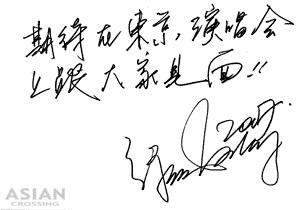 期待在東京演唱会
上跟大家見面!!
2007
ASIAN
CROSSING